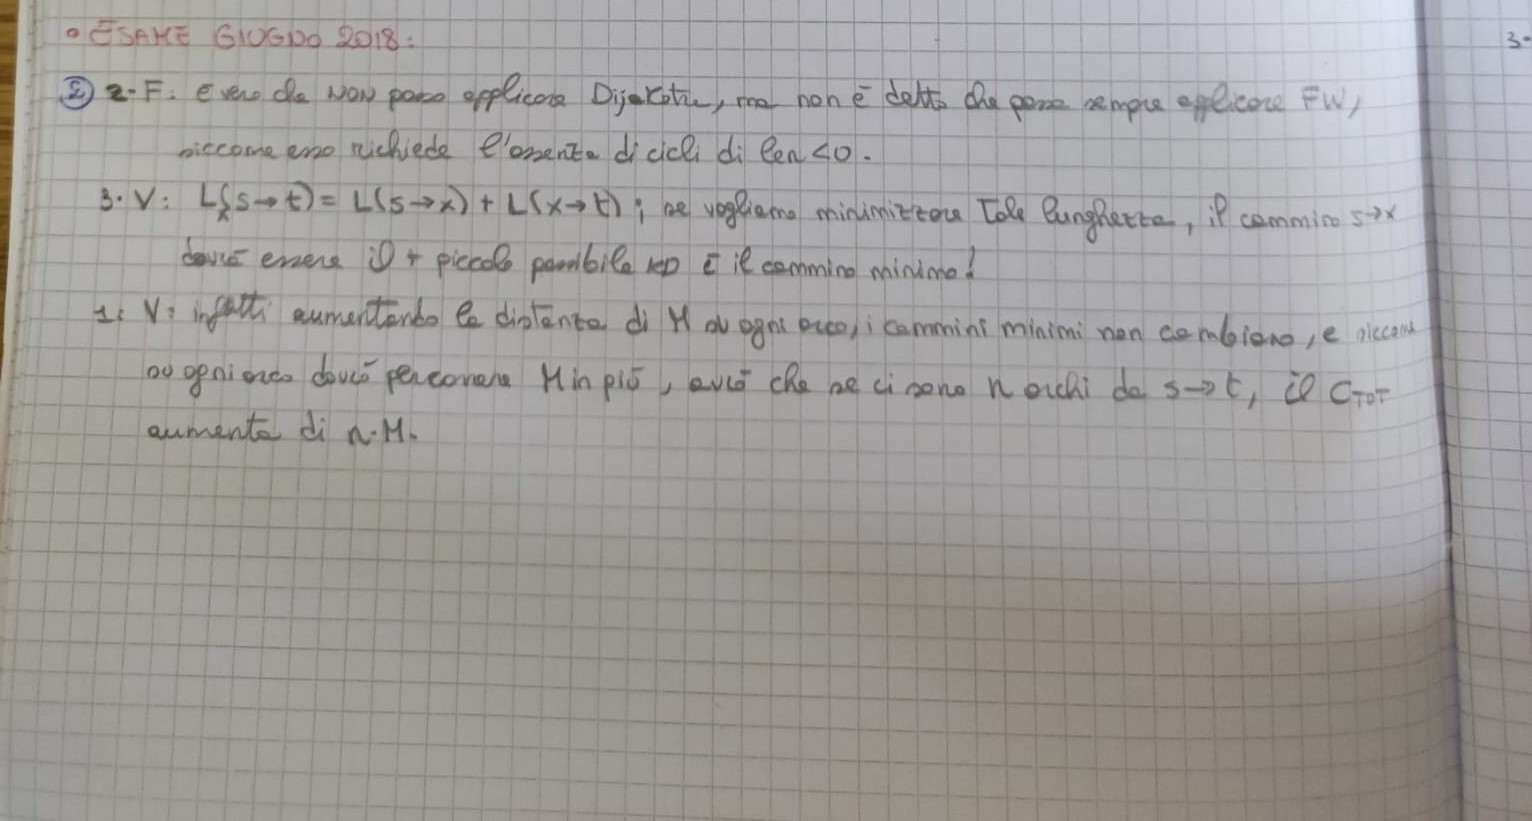 • ESAME GIUGNO 2018:
3.
② 2. F: è vero che NON posso applicare Dijkstra, ma non è detto che possa sempre applicare FW,
siccome esso richiede l'assenza di cicli di len<0.
3. V: Lₓ(s→t) = L(s→x) + L(x→t); se vogliamo minimizzare tale lunghezza, il cammino s→x
dovrà essere il + piccolo possibile ⇒ è il cammino minimo!
1: V: infatti aumentando la distanza di M ad ogni arco, i cammini minimi non cambiano, e siccome
ad ogni arco dovrò percorrere M in più, avrò che se ci sono n archi da s→t, il CTOT
aumenta di n·M.